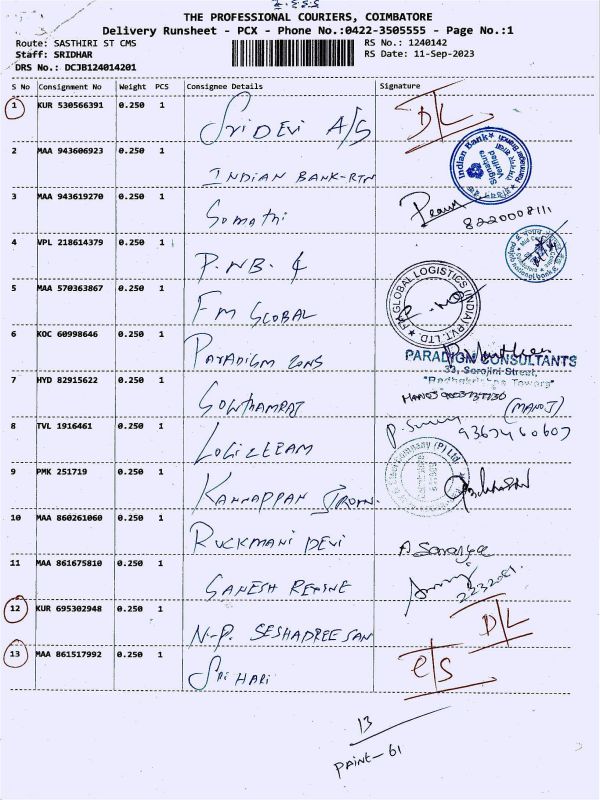 THE PROFESSIONAL COURIERS, COIMBATORE
Delivery Runsheet - PCX - Phone No.:0422-3505555 - Page No.:1
Route: SASTHIRI ST CMS
RS No.: 1240142
Staff: SRIDHAR
RS Date: 11-Sep-2023
DRS No.: DCJB124014201
S No Consignment No Weight PCS Consignee Details Signature
1 KUR 530566391 0.250 1 Sri Devi A/S D/L
2 MAA 943606923 0.250 1 INDIAN BANK-RTN Indian Bank Signature Verified
3 MAA 943619270 0.250 1 Somathi 8220008111
4 VPL 218614379 0.250 1 P.NB.
5 MAA 570363867 0.250 1 FM GLOBAL FM GLOBAL LOGISTICS (INDIA) PVT. LTD
6 KOC 60998646 0.250 1 PARADIGM CONS PARADIGM CONSULTANTS
33, Sarojini Street,
7 HYD 82915622 0.250 1 GOWTHAMRAJ (MANOJ)
8 TVL 1916461 0.250 1 LOGIZTEAM 9367460607
9 PMK 251719 0.250 1 KANNAPPAN Company (P) Ltd
10 MAA 860261060 0.250 1 RUCKMANI DEVI
11 MAA 861675810 0.250 1 GANESH
12 KUR 695302948 0.250 1 N-P. SESHADREESAN D/L
13 MAA 861517992 0.250 1 Sri HARI e/s
13